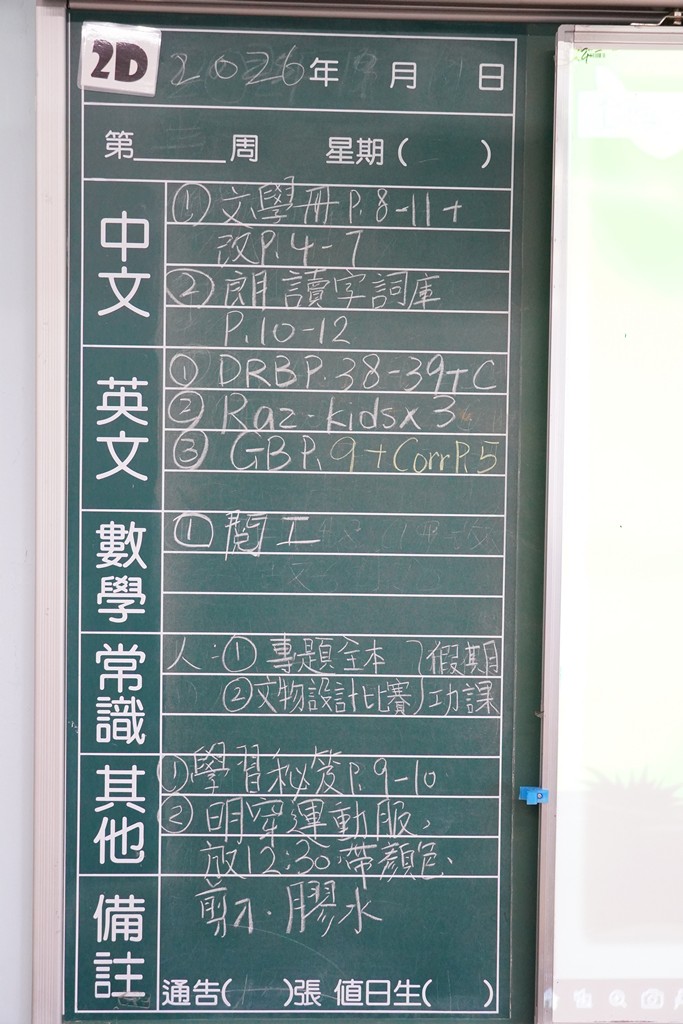 2D 2026年 月 日
第 周 星期( )
中文
① 文學冊 P.8-11+
改P.4-7
② 朗讀字詞庫
P.10-12
英文
① DRBP.38-39+C
② Raz-kids x 3
③ GBP.9+CorrP.5
數學
① 閱工
常識
人:① 專題全本 假期
②文物設計比賽 功課
其他
①學習秘笈P.9-10
② 明穿運動服,
放12:30 帶顏色、
備註
剪刀.膠水
通告( )張 值日生( )